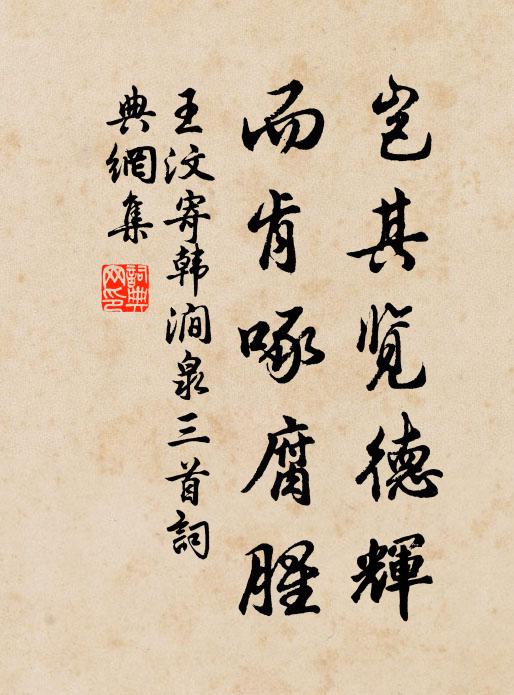 岂其览德輝
而肯啄腐腥
王汶寄韩涧泉三首詞
典網集
詞典
网印